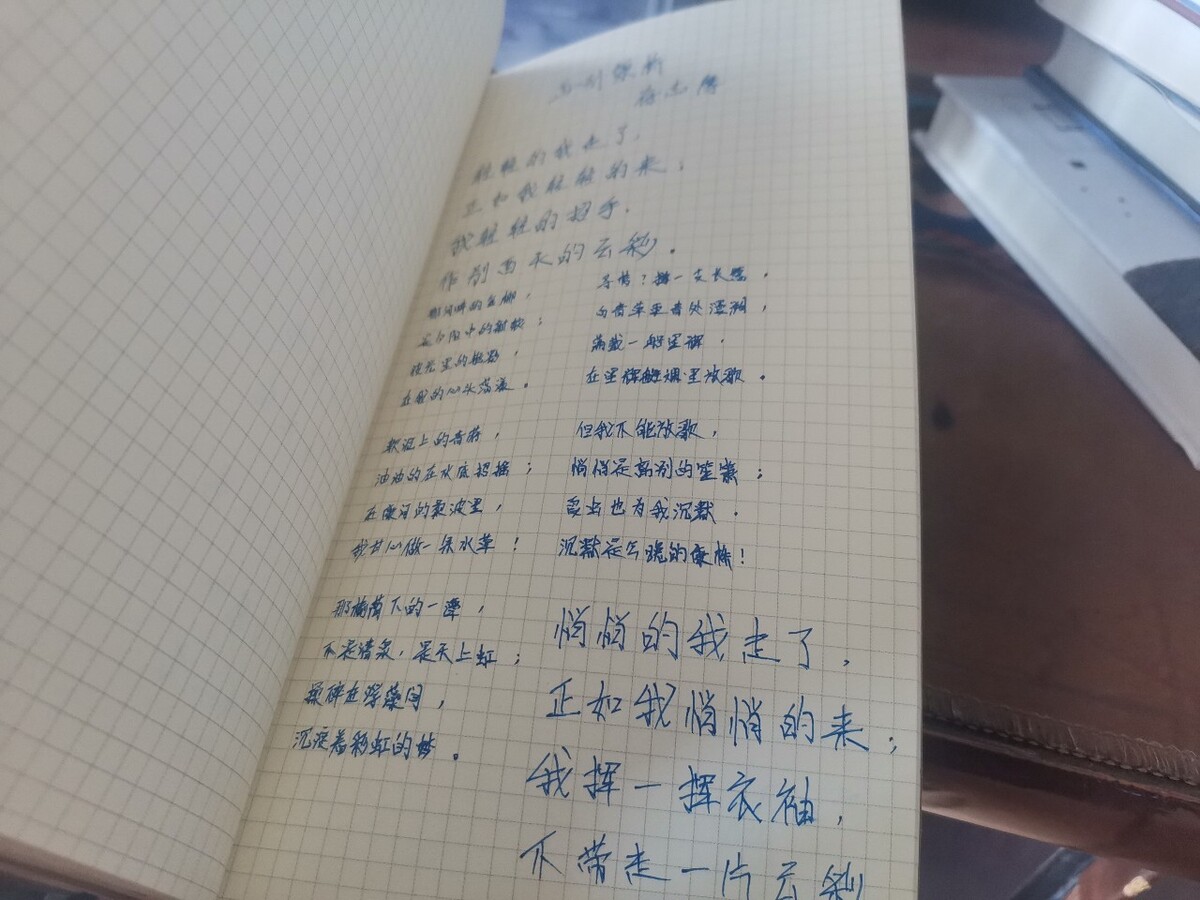 再别康桥
徐志摩
轻轻的我走了，
正如我轻轻的来；
我轻轻的招手，
作别西天的云彩。
那河畔的金柳，
是夕阳中的新娘；
波光里的艳影，
在我的心头荡漾。
软泥上的青荇，
油油的在水底招摇；
在康河的柔波里，
我甘心做一条水草！
那榆荫下的一潭，
不是清泉，是天上虹；
揉碎在浮藻间，
沉淀着彩虹的梦。
寻梦？撑一支长篙，
向青草更青处漫溯，
满载一船星辉，
在星辉斑斓里放歌。
但我不能放歌，
悄悄是离别的笙箫；
夏虫也为我沉默，
沉默是今晚的康桥！
悄悄的我走了，
正如我悄悄的来；
我挥一挥衣袖，
不带走一片云彩